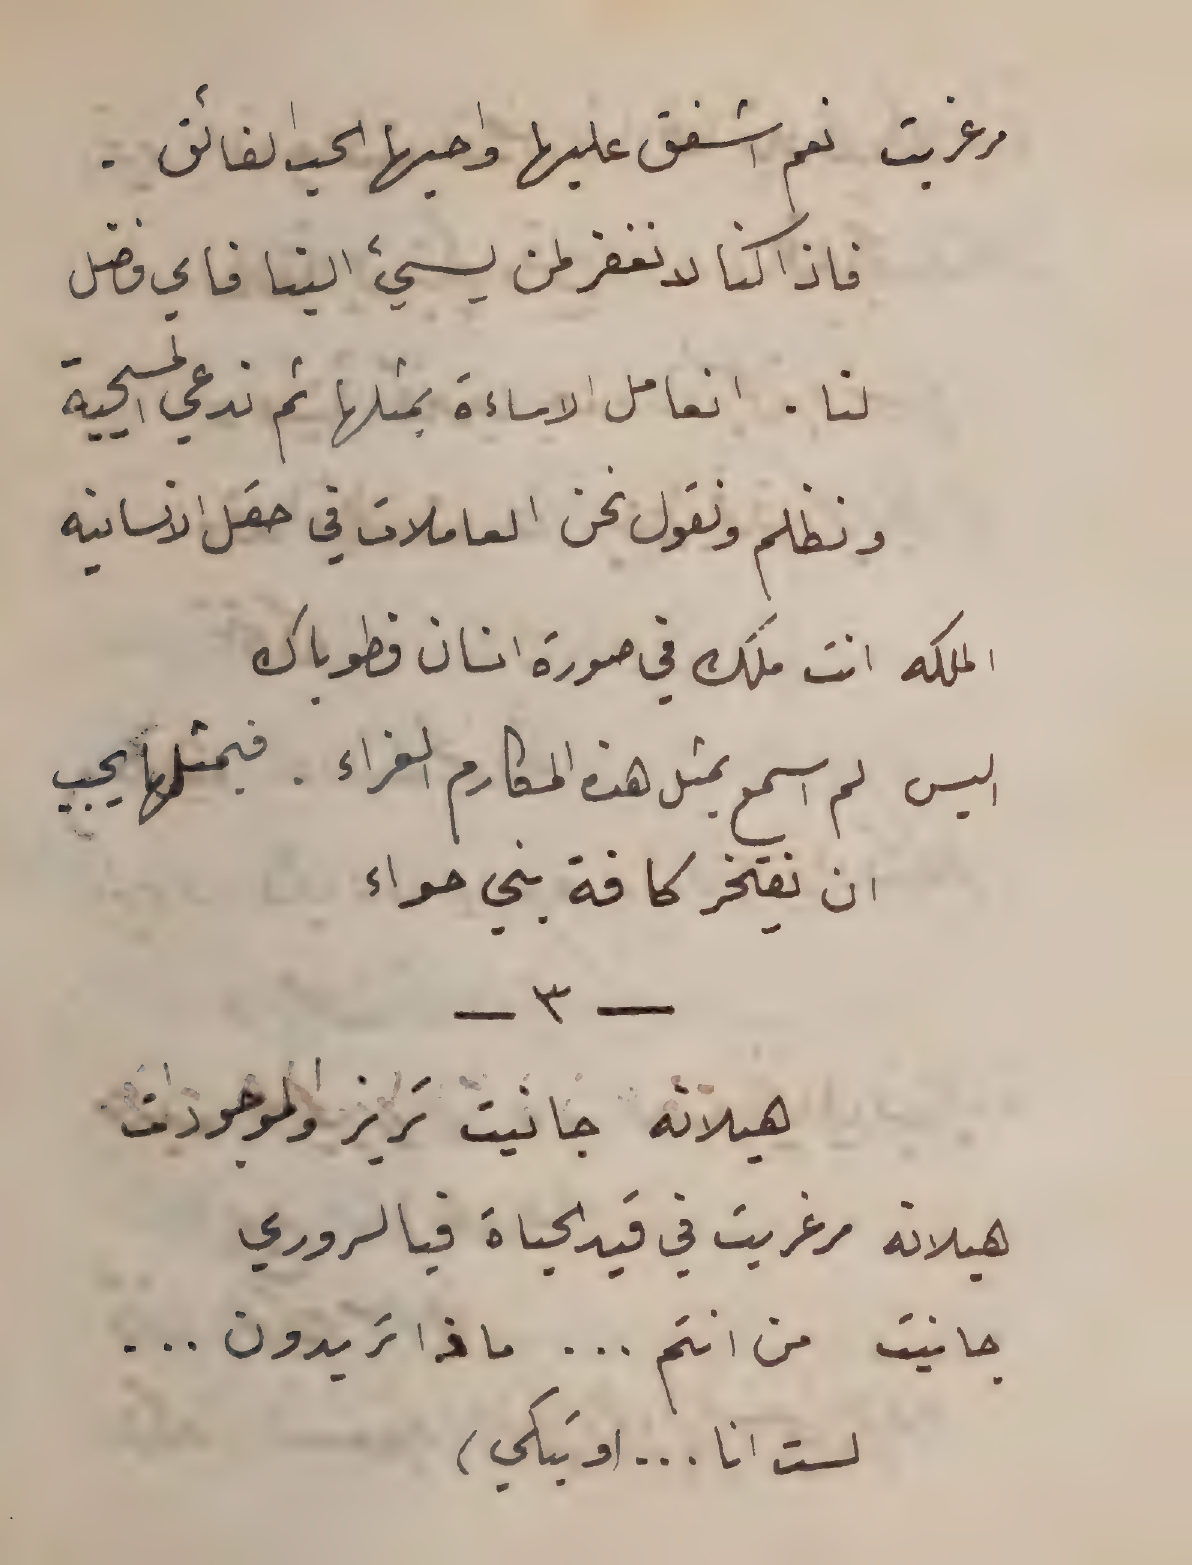 مرغريت نعم اشفق عليها واحبها الحب الفائق .
فاذا كنا لا نغفر لمن يسيئ الينا فاي فضل
لنا . انعامل الاساءة بمثلها ثم ندعي المسيحية
ونظلم ونقول نحن العاملات في حقل الانسانيه
الملكه انت ملَك في صورة انسان فطوباك
اليس لم اسمع بمثل هذه المكارم الغراء . فبمثلها يجب
ان تفتخر كافة بني حواء
— ٣ —
هيلانه جانيت تريز والموجودات
هيلانه مرغريت في قيد الحياة فيا لسروري
جانيت من انتم ... ماذا تريدون ...
لست انا ... (وتبكي)